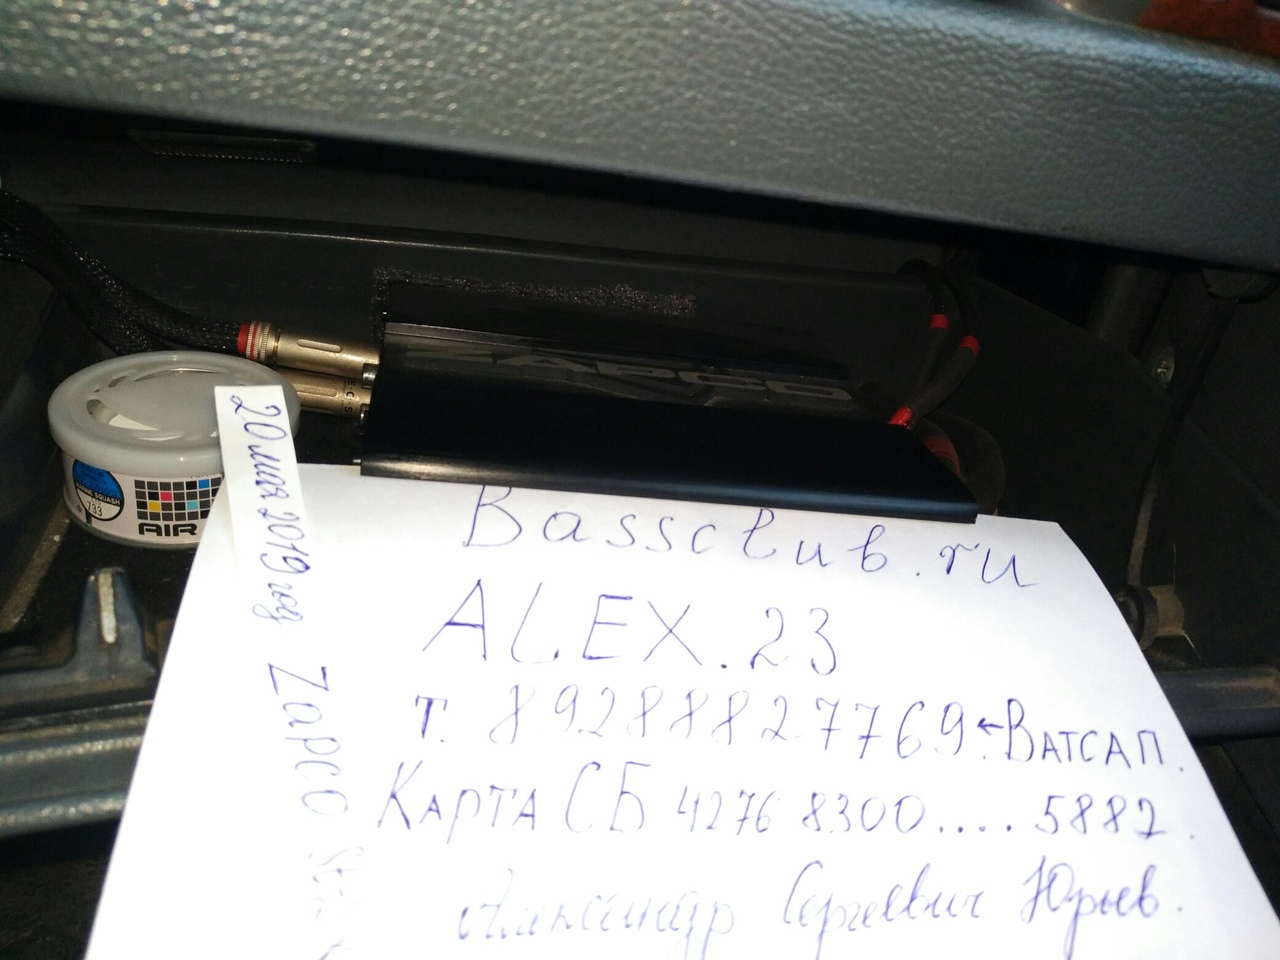 ZAPCO
20 мая 2019 год
SQUASH
733
AIR
Bassclub.ru
ALEX.23
т. 89288827769 ← Ватсап.
Карта СБ 4276 8300.... 5882.
Александр Сергеевич Юрьев.
Zapco